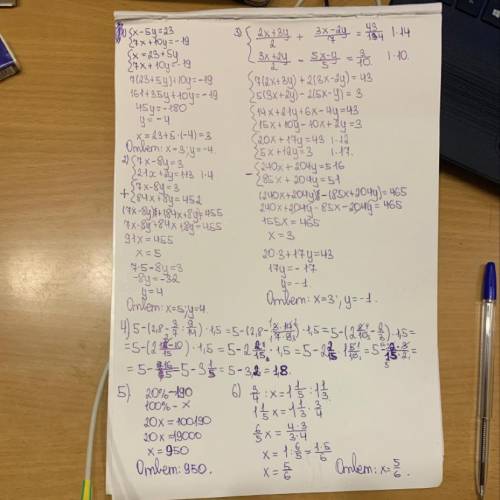 x-5y=23
7x+10y=-19
x=23+5y
7x+10y=-19
7(23+5y)+10y=-19
161+35y+10y=-19
45y=-180
y=-4
x=23+5·(-4)=3
Ответ: x=3; y=-4
2) 7x-8y=3
21x+2y=113 |·4
7x-8y=3
84x+8y=452
7x-8y+84x+8y=455
91x=455
x=5
7·5-8y=3
-8y=-32
y=4
Ответ: x=5; y=4.
3) (2x+3y)/2 + (3x-2y)/7 = 43/14 |·14
3x+2y
= 3/10 |·10.
7(2x+3y)+2(3x-2y)=43
5(3x+2y)-2(5x-y)=3
14x+21y+6x-4y=43
15x+10y-10x+2y=3
20x+17y=43 |·12
5x+12y=3 |·17.
240x+204y=516
85x+204y=51
(240x+204y)-(85x+204y)=465
240x+204y-85x-204y=465
155x=465
x=3
20·3+17y=43
17y=-17
y=-1.
Ответ: x=3; y=-1.
4) 5-(2,8-
)·1,5=5-(2,8-
)·1,5=
·1,5=
=1,8.
5) 20%-190
100%-x
20x=100·190
20x=19000
x=950
Ответ: 950.
6) 3/4 : x = 1 1/5 : 1 1/3
1 1/5 x = 1 1/3 · 3/4
6/5 x = (4·3)/(3·4)
x = 1 : 6/5 = (1·5)/6
x = 5/6
Ответ: x = 5/6.